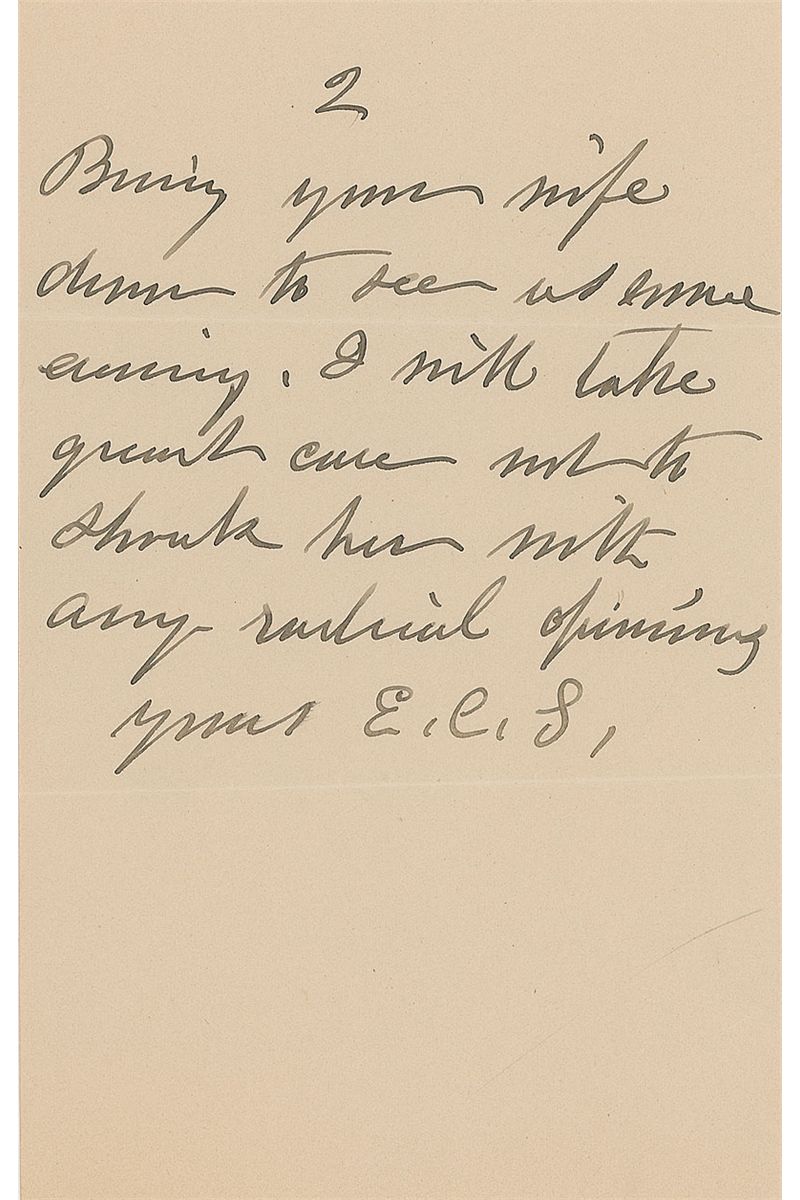 2
Bring your wife
down to see us some
evening. I will take
great care not to
shock her with
any radical opinions
yours E.C.S,